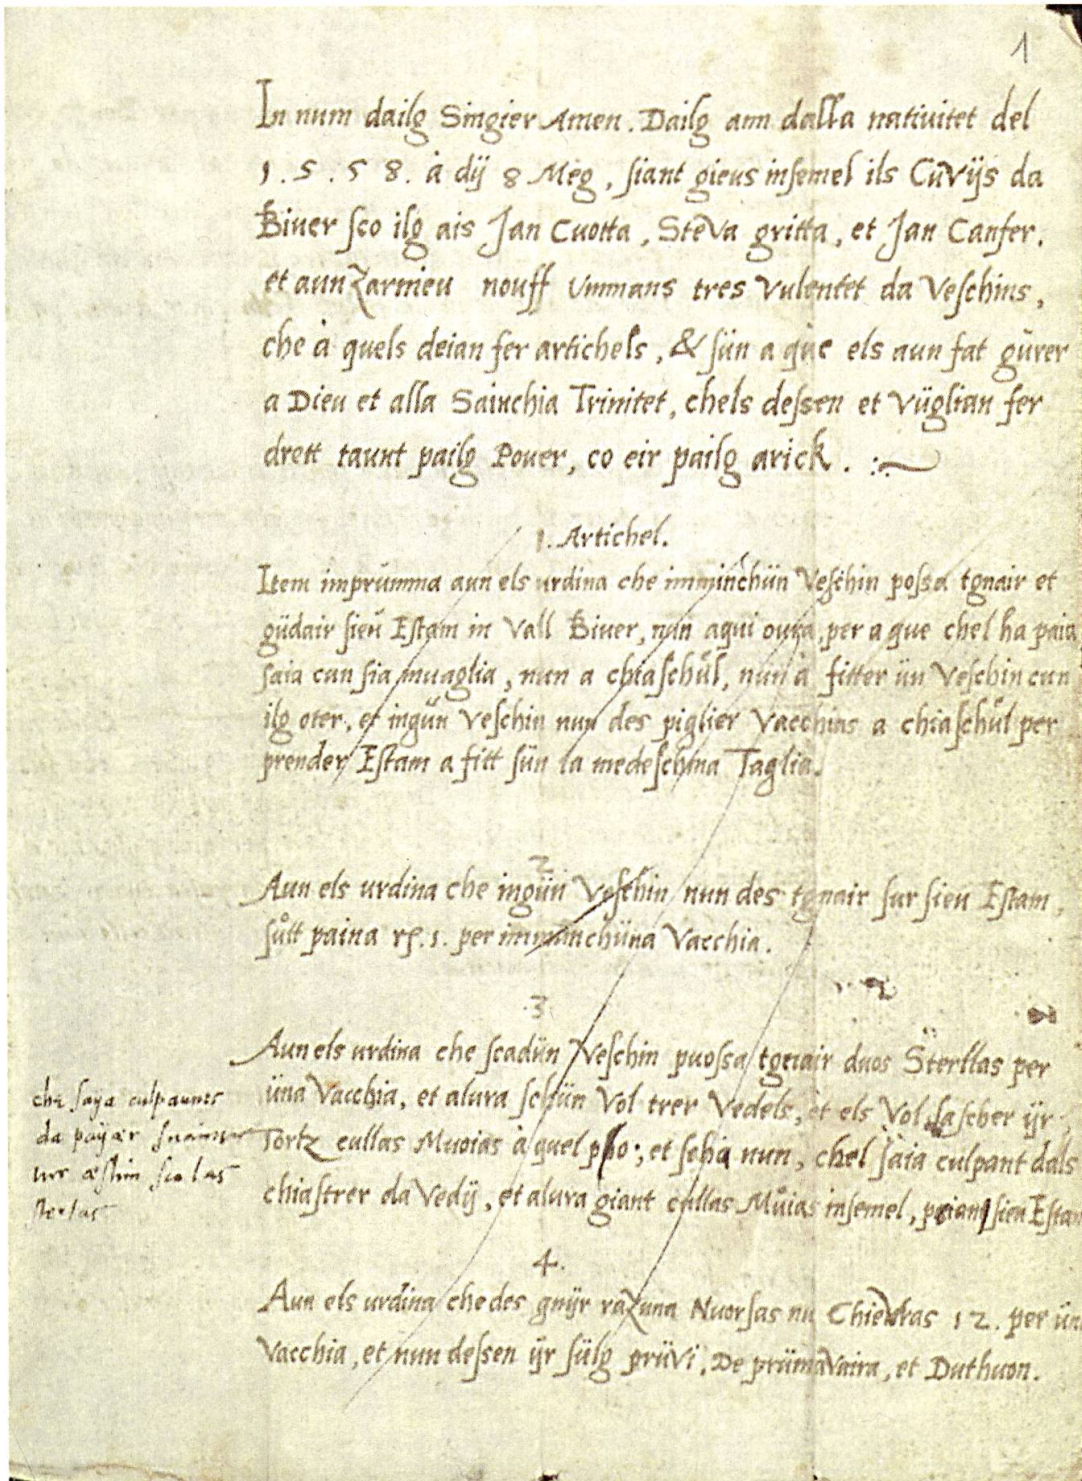 1
In num dailg Singier Amen. Dailg ann dalla natiuitet del
1.5.5 8. à dij 8 Meg, siant gieus insemel ils Cuvijs da
Biuer sco ilg ais Jan Cuotta, Steva gritta, et Jan Canfer.
et aun zarnieu nouff Ummans tres vulentet da Veschins,
che à quels deian fer artichels, & sün a que els aun fat gürer
a Dieu et alla Sainchia Trinitet, chels dessen et vüglian fer
drett taunt pailg Pouer, co eir pailg arick.
1. Artichel.
Item imprümma aun els urdina che imminchün Veschin possa tgnair et
güdair sieu Estam in Vall Biuer, nun aqui oura, per a que chel ha paia
saia cun sia muaglia, nun a chiaschül, nun à fitter ün Veschin cun
ilg oter, et ingün Veschin nun des piglier Vacchias a chiaschül per
prender Estam a fitt sün la medeschma Taglia.
2
Aun els urdina che ingün Veschin nun des tgnair sur sieu Estam,
sůtt paina rf. 1. per imminchüna Vacchia.
3
Aun els urdina che scadün Veschin puossa tgnair duos Sterllas per
üna Vacchia, et alura schün vol trer Vedels, et els vol lascher ijr
Tortz cullas Muoias à quel po; et scha nun, chel saia culpant dals
chiastrer da Vedij, et alura giant cullas Můias insemel, paiand sieu Estam
che saya culpaunts
da payær
üns æstim sco las
sterlas
4.
Aun els urdina che des gnijr razuna Nuorsas nu Chievras 12. per üna
Vacchia, et nun dessen ijr sülg prüvi, De prümavaira, et Duthuon.